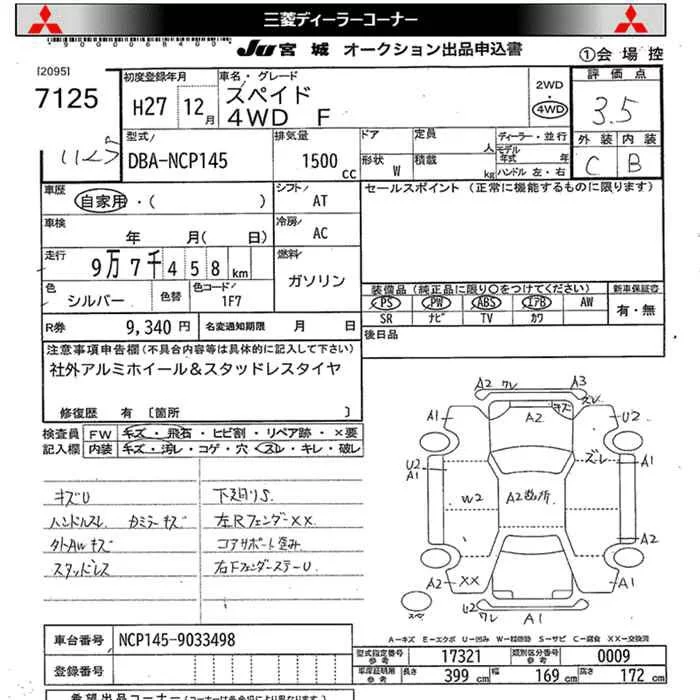 三菱ディーラーコーナー
JU 宮城 オークション出品申込書
①会場控
[2095]
7125
初度登録年月
H27 12月
車名・グレード
スペイド
4WD F
2WD
・
4WD
評価点
3.5
外装 内装
C B
型式/
DBA-NCP145
排気量
1500cc
ドア
形状 W
定員 人
積載 kg
ディーラー・並行
モデル年式 年
ハンドル 左・右
車歴
自家用・( )
シフト/
AT
セールスポイント (正常に機能するものに限ります)
車検
年 月( 日)
冷房/
AC
走行
9万7千458km
燃料/
ガソリン
色
シルバー
色替
色コード/
1F7
装備品(純正品に限り○をつけてください)
PS PW ABS エアB AW
SR ナビ TV カワ
新車保証書
有・無
R券 9,340円
名変通知期限 月 日
後日品
注意事項申告欄(不具合内容等は具体的に記入して下さい)
社外アルミホイール&スタッドレスタイヤ
修復歴 有 〔箇所 〕
検査員記入欄
FW キズ・飛石・ヒビ割・リペア跡・×要
内装 キズ・汚レ・コゲ・穴・スレ・キレ・破レ
キズU
ハンドルスレ
外AWキズ
スタッドレス
下廻りS
左RフェンダーXX
コアサポート歪み
右FフェンダーステーU
A2 ワレ A3
キズ スレ
A1 A2 U2
U2 A1 スレ A1
W2 A2
A2
A2 XX A1
スペ
U2 ワレ A1
A-キズ E-エクボ U-凹み W-補修跡 S-サビ C-腐食 XX-交換済
車台番号 NCP145-9033498
登録番号
型式指定番号 参考 17321
類別区分番号 参考 0009
車庫証明用 参考 長さ 399cm 幅 169cm 高さ 172cm